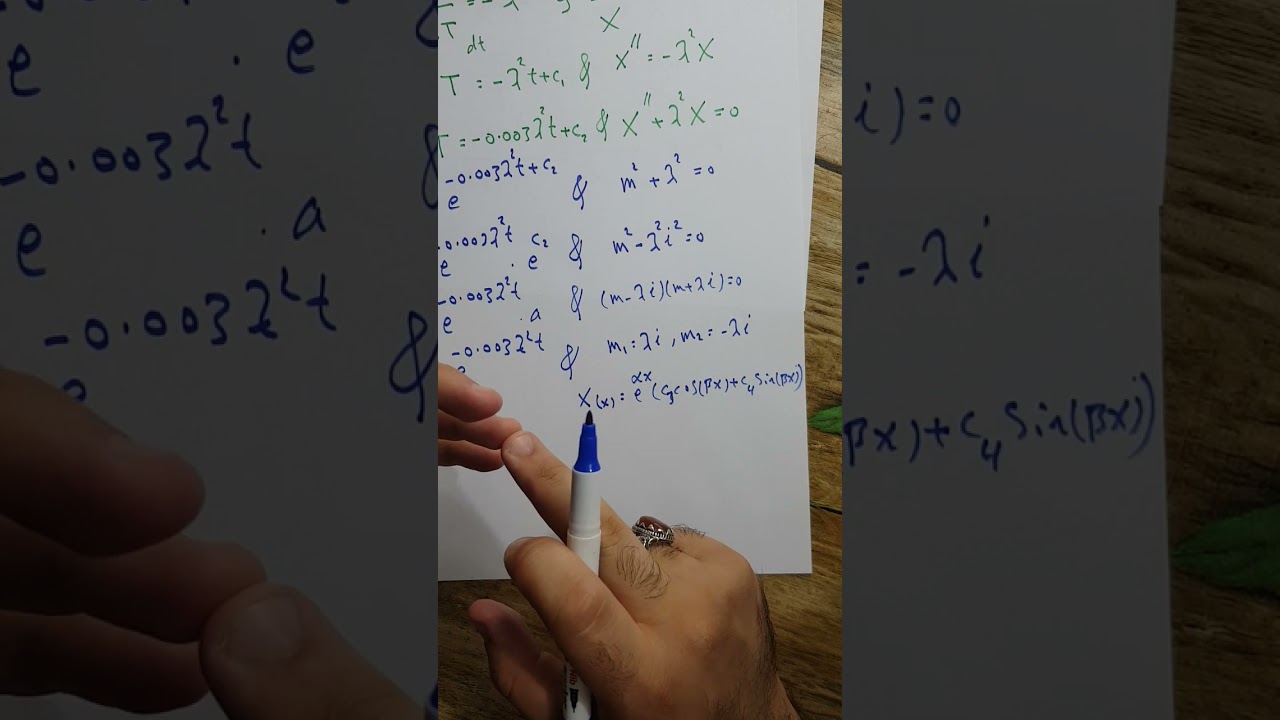 X
dt
T = -λ²t + c₁ & X'' = -λ²X
T = -0.003λ²t + c₂ & X'' + λ²X = 0
e^(-0.003λ²t + c₂) & m² + λ² = 0
e^(-0.003λ²t) . e^(c₂) & m² - λ²i² = 0
e^(-0.003λ²t) . a & (m - λi)(m + λi) = 0
-0.003λ²t & m₁ = λi , m₂ = -λi
X(x) = e^(αx) (c₃cos(βx) + c₄ sin(βx))